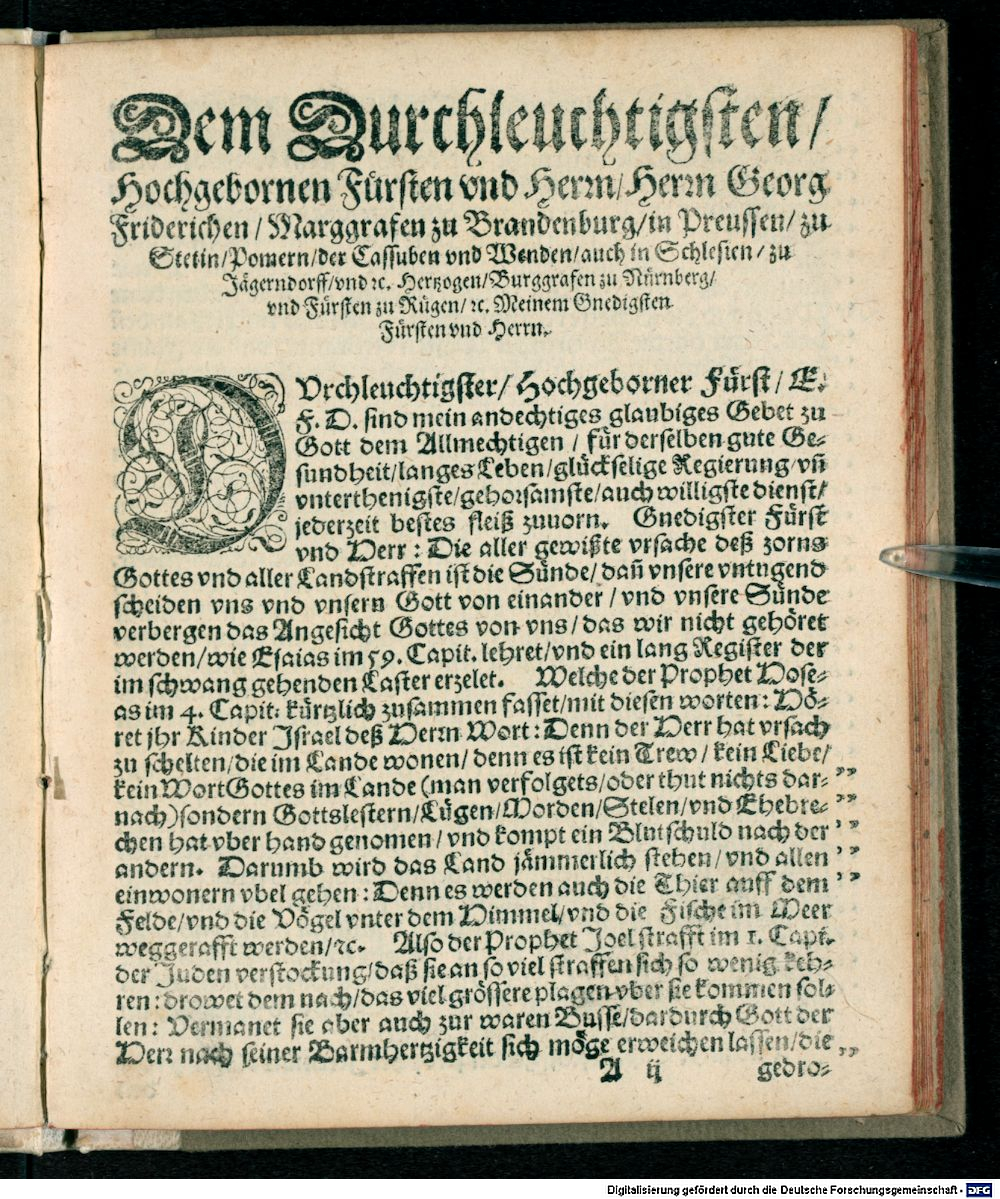 Dem Durchleuchtigsten/
Hochgebornen Fürsten vnd Herrn/Herrn Georg
Friderichen/Marggrafen zu Brandenburg/in Preussen/zu
Stetin/Pomern/der Cassuben vnd Wenden/auch in Schlesien/zu
Jägerndorff/vnd ꝛc. Hertzogen/Burggrafen zu Nürnberg/
vnd Fürsten zu Rügen/ꝛc. Meinem Gnedigsten
Fürsten vnd Herrn.
DVrchleuchtigster/Hochgeborner Fürst/E.
F. D. sind mein andechtiges glaubiges Gebet zu
Gott dem Allmechtigen/für derselben gute Ge-
sundheit/langes Leben/glückselige Regierung/vñ
vnterthenigste/gehorsamste/auch willigste dienst/
jederzeit bestes fleiß zuuorn. Gnedigster Fürst
vnd Herr: Die aller gewißte vrsache deß zorns
Gottes vnd aller Landstraffen ist die Sünde/dañ vnsere vntugend
scheiden vns vnd vnsern Gott von einander/vnd vnsere Sünde
verbergen das Angesicht Gottes von vns/das wir nicht gehöret
werden/wie Esaias im 59. Capit. lehret/vnd ein lang Register der
im schwang gehenden Laster erzelet. Welche der Prophet Hose-
as im 4. Capit. kürtzlich zusammen fasset/mit diesen worten: Hö-
ret jhr Kinder Israel deß Herrn Wort: Denn der Herr hat vrsach
zu schelten/die im Lande wonen/denn es ist kein Trew/kein Liebe/
kein Wort Gottes im Lande (man verfolgets/oder thut nichts dar- „
nach) sondern Gottslestern/Lügen/Morden/Stelen/vnd Ehebre- „
chen hat vber hand genomen/vnd kompt ein Blutschuld nach der „
andern. Darumb wird das Land jämmerlich stehen/vnd allen „
einwonern vbel gehen: Denn es werden auch die Thier auff dem „
Felde/vnd die Vögel vnter dem Himmel/vnd die Fische im Meer
weggerafft werden/ꝛc. Also der Prophet Joel strafft im 1. Capi.
der Juden verstockung/daß sie an so viel straffen sich so wenig keh-
ren: drowet dem nach/das viel grössere plagen vber sie kommen sol-
len: Vermanet sie aber auch zur waren Busse/dardurch Gott der
Herr nach seiner Barmhertzigkeit sich möge erweichen lassen/die „
A ij gedro-
Digitalisierung gefördert durch die Deutsche Forschungsgemeinschaft - DFG